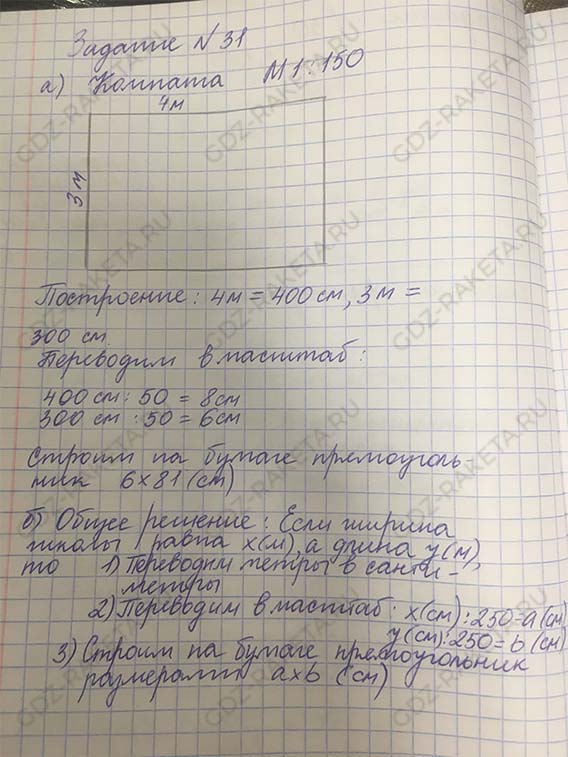 Задание N 31
а) Комната М 1:150
4м
3 м
Построение: 4м = 400 см, 3 м =
300 см.
Переводим в масштаб:
400 см : 50 = 8см
300 см : 50 = 6см
Строим на бумаге прямоуголь-
ник 6х81 (см)
б) Общее решение: Если ширина
школы равна х(м), а длина у(м),
то 1) Переводим метры в санти-
метры
2) Переводим в масштаб: х(см):250=а(см)
у(см):250=b(см)
3) Строим на бумаге прямоугольник
размерами ахb (см)
GDZ-RAKETA.RU